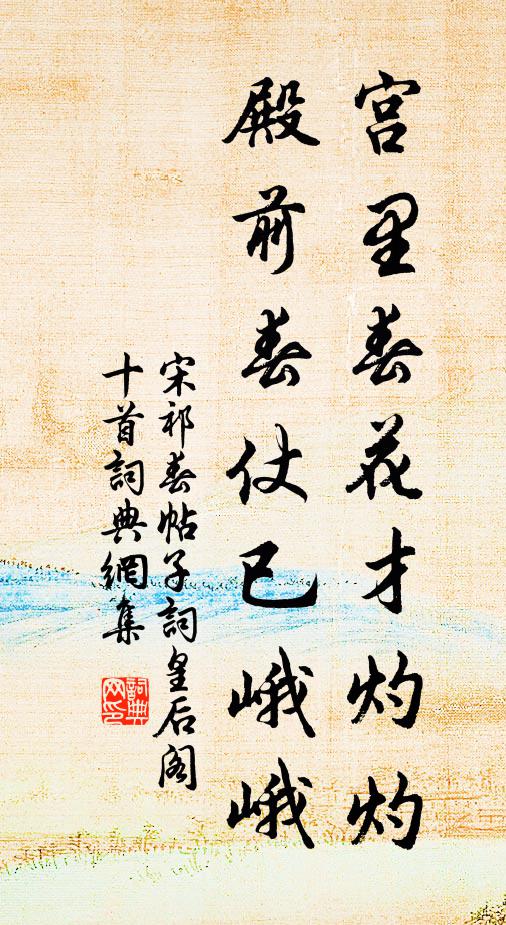 宫里春花才灼灼
殿前春仗已峨峨
宋祁春帖子詞皇后阁
十首詞典網集
詞典网印